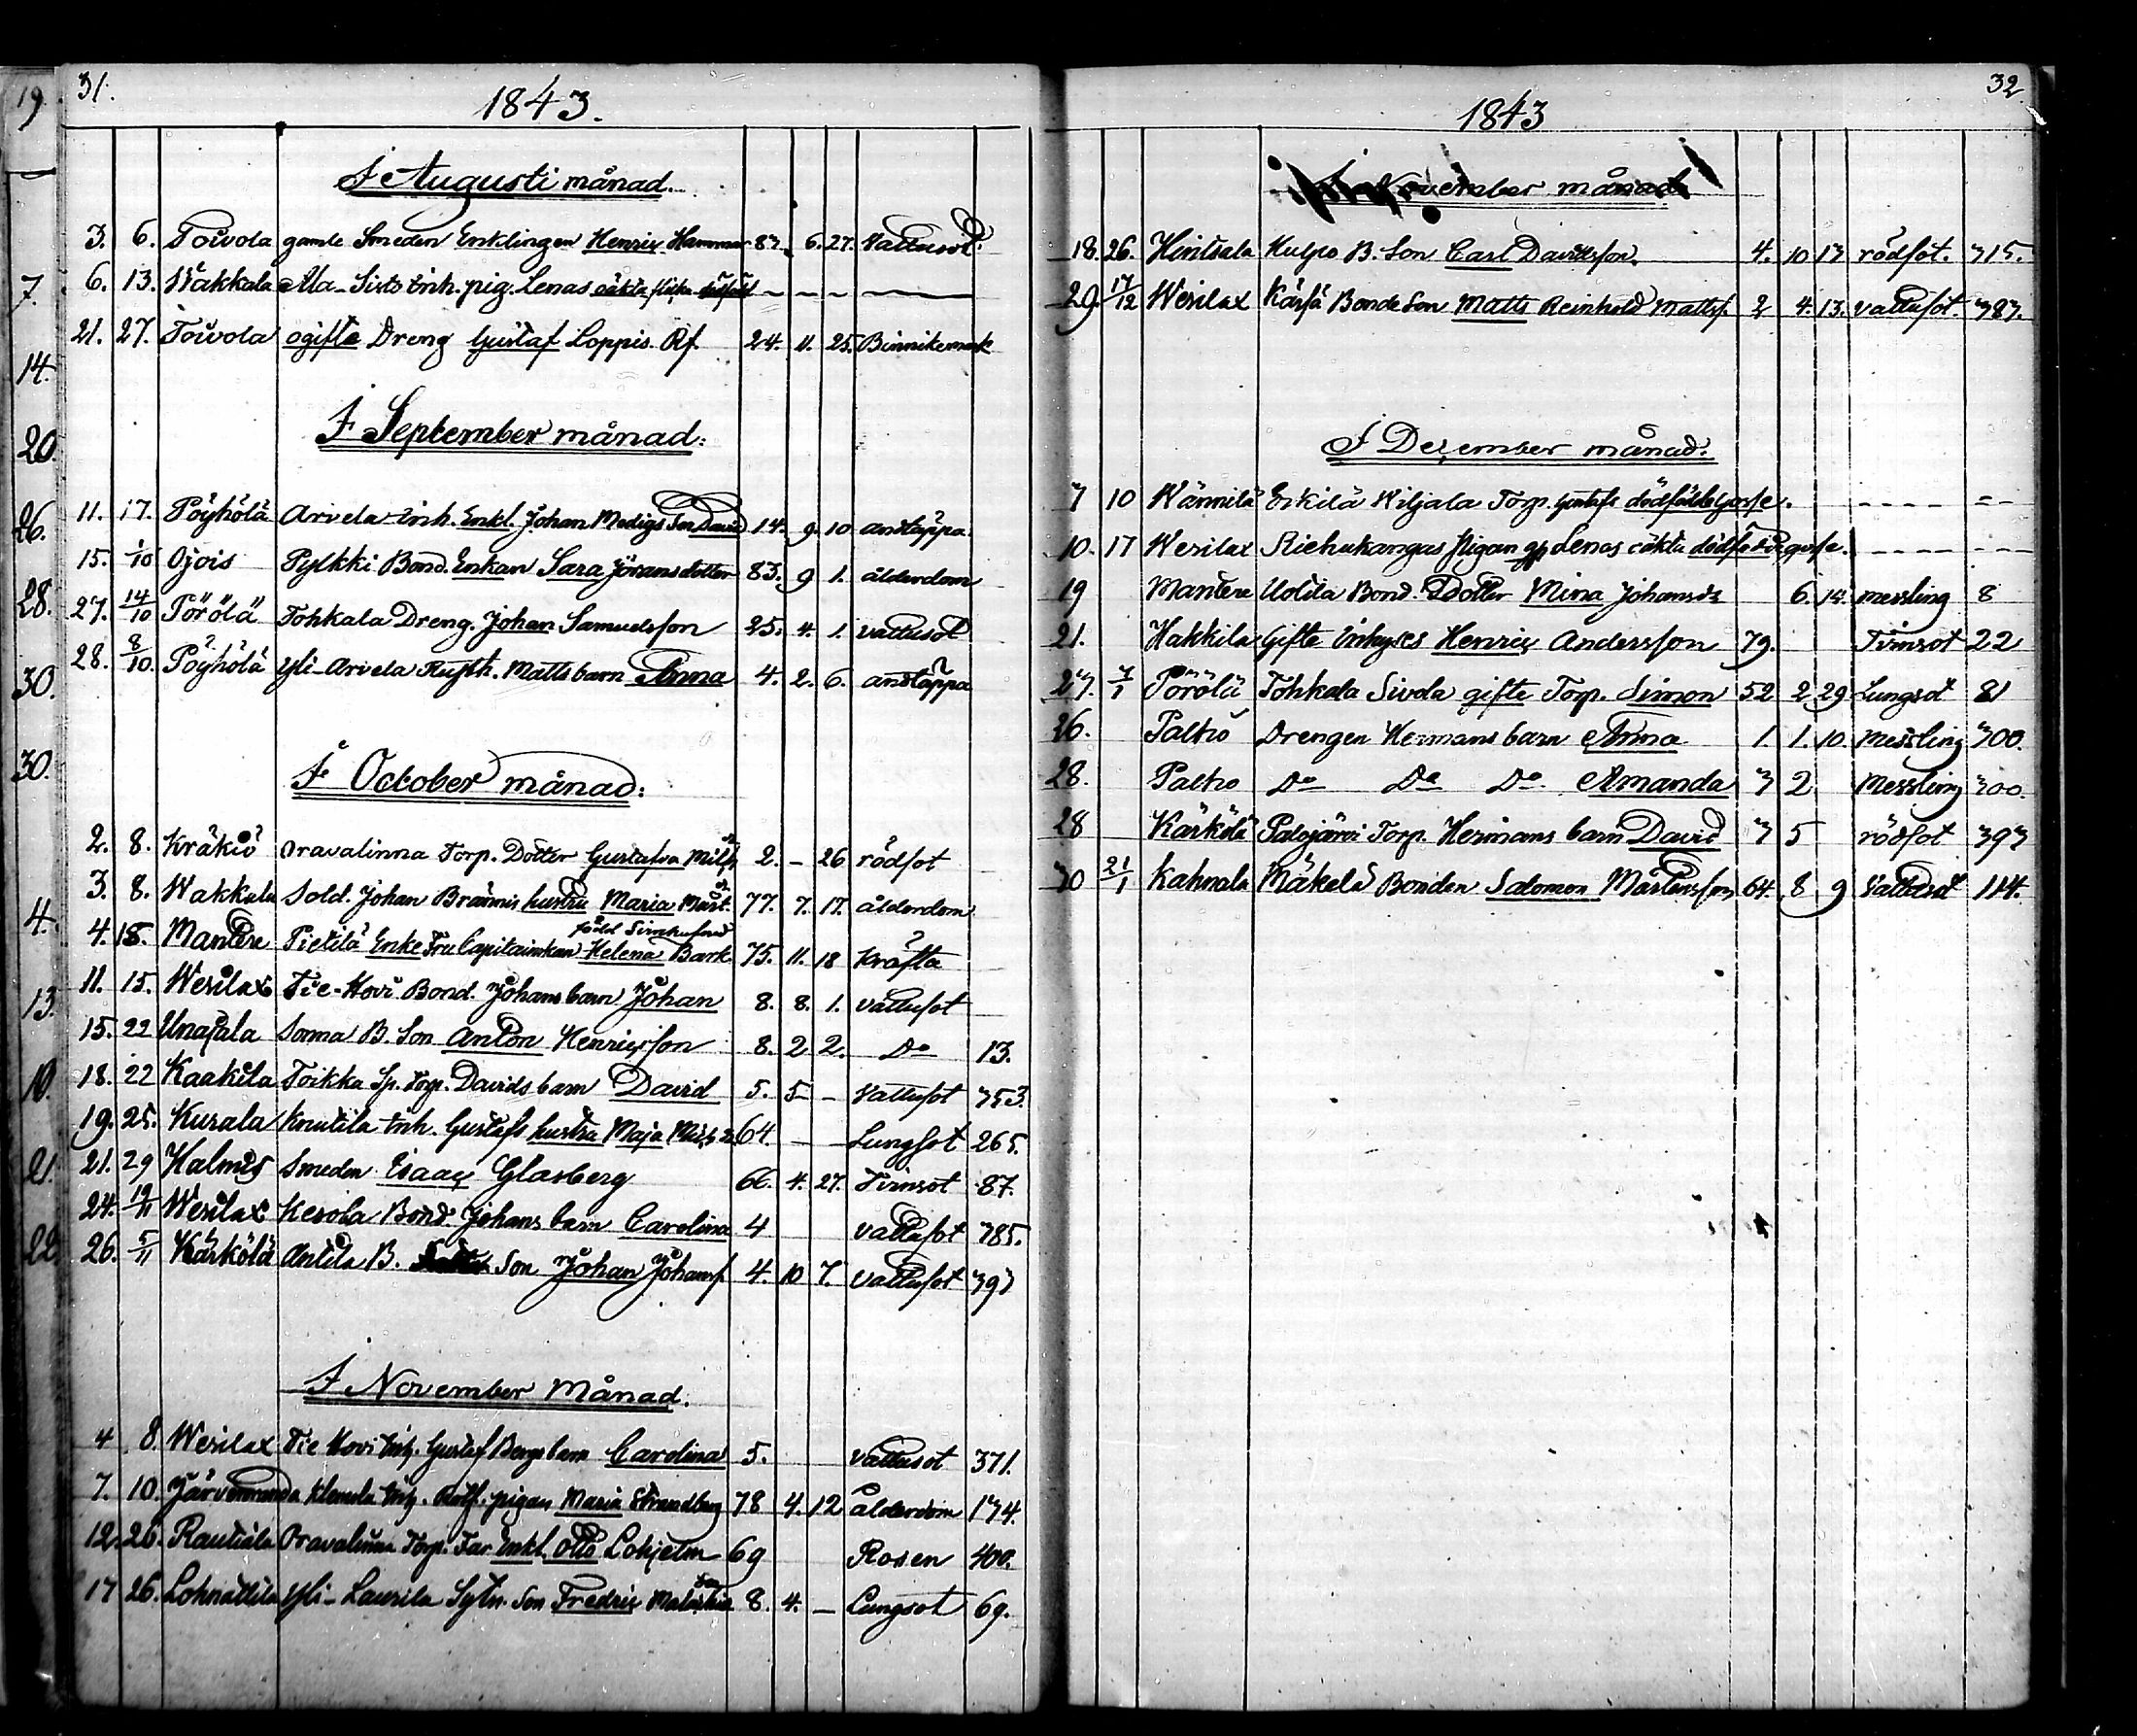 31.
1843.
I Augusti månad.
3. 6. Toivola gamle Smeden Enklingen Henric Hammar 87. 6. 27. Vattusot.
6. 13. Wakkala Ala-Sists Inh. pig. Lenas oäkta flicka dödfödd — — — —
21. 27. Toivola ogifte Dreng Gustaf Loppis. Rf. 24. 11. 25. Binnikemask
I September månad:
11. 17. Pöyhölä Arvela Inh. Enkl. Johan Modigs Son David 14. 9. 10 andtäppa.
15. 1/10 Ojois Pylkki Bond. Enkan Sara Jöransdotter 83. 9 1. ålderdom
27. 14/10 Pörölä Tohkala Dreng. Johan Samuelsson 25. 4. 1. vattusot
28. 8/10. Pöyhölä Yli-Arvela Rusth. Matts barn Anna 4. 2. 6. andtäppa
I October månad:
2. 8. Kräkiö Oravalinna Torp. Dotter Gustafva 2. — 26 rödsot
3. 8. Wakkala Sold. Johan hustru Maria 77. 7. 17. ålderdom
4. 18. Mantere Pietilä Enke Fru Capitainskan Helena Bark 75. 11. 18 Kräfta
11. 15. Wesilax Tie-Hovi Bond. Johans barn Johan 8. 8. 1. vattusot
15. 22 Unajala Sonna B. Son Anton Henricsson 8. 2 2. Do 13.
18. 22 Kaakila Toikka Sp. Torp. Davids barn David 5. 5 — Vattusot 353.
19. 25. Kurala Knutila Inh. Gustafs hustru Maja 64. — — Lungsot 265.
21. 29 Halmis Smeden Isaac Glasberg 66. 4. 27. Tvinsot 87.
24. Wesilax Kesola Bond. Johans barn Carolina 4 vattusot 385.
26. 5/11 Kärkölä Antila B. Son Johan Johansf. 4. 10 7. vattusot 393
I November Månad.
4 8. Wesilax Tie Hovi Inh. Gustaf Bergs barn Carolina 5. vattusot 371.
7. 10. Järvenranda Klemola Inh. pigan Maria Strandberg 78 4. 12 ålderdom 134.
12. 26. Rautiala Oravalinna Torp. Far Enkl. Otto Lohjelm 69 Rosen 400.
17 26. Lohnattila Yli-Laurila Sytn. Son Fredric 8. 4. — Lungsot 69.
32
1843
November månad
18. 26. Hintsala Hulpo B. Son Carl Davidsson. 4. 10 13 rödsot. 315.
29. 17/12 Wesilax Kärsä Bonde Son Matts Reinhold Mattsf. 2 4. 13. vattusot. 383.
I December månad:
7 10 Wännilä Erkilä Wiljala Torp. Gustafs dödfödde gosse. - - - - - -
10. 17 Wesilax Riehukangas Pigan Lenas oäkta dödfödde gosse. - - - - - -
19 Mantere Uotila Bond. Dotter Mina Johansdr 6. 14. messling 8
21. Hakkila Gifte Inhyses Henric Andersson 79. Tvinsot 22
27. 7/1 Pörölä Tohkala Sivola gifte Torp. Simon 52 2 29 Lungsot 81
26. Palho Drengen Hermans barn Anna 1. 1. 10. Messling 300.
28. Palho Do Do Do Amanda 3 2 Messling 300.
28 Kärkölä Palojärvi Torp. Hermans barn David 3 5 rödsot 393
30 21/1 Kahnala Mäkelä Bonden Salomon Mårtensson 64. 8 9 Vattusot 114.